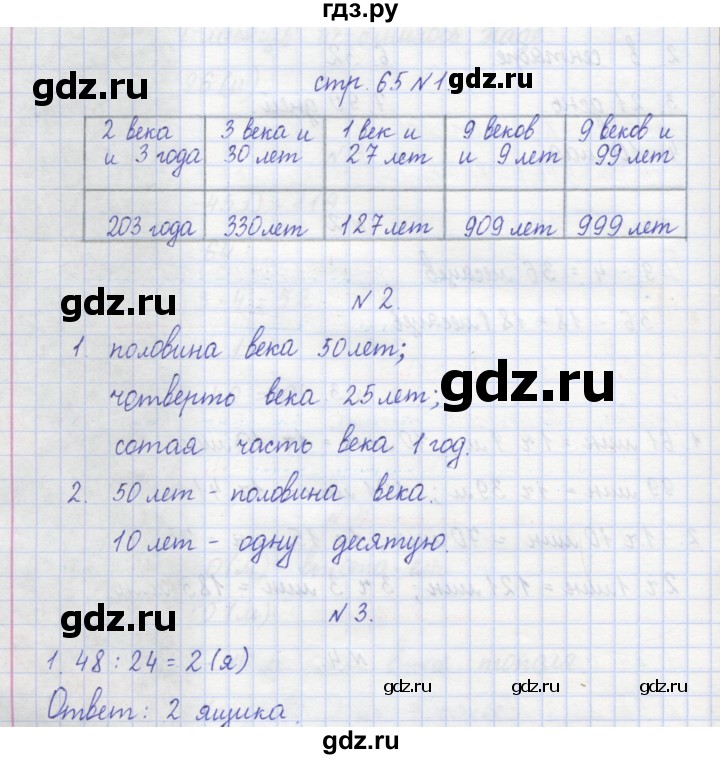 гдз.ру
стр. 65 N 1
gdz.ru
gdz.ru
2 века и 3 года
3 века и 30 лет
1 век и 27 лет
9 веков и 9 лет
9 веков и 99 лет
203 года
330 лет
127 лет
909 лет
999 лет
gdz.ru
N 2.
1. половина века 50 лет;
gdz.ru
четверто века 25 лет;
сотая часть века 1 год.
2. 50 лет - половина века.
10 лет - одну десятую.
gdz.ru
N 3.
1. 48 : 24 = 2 (я)
gdz.ru
gdz.ru
Ответ: 2 ящика.
gdz.ru